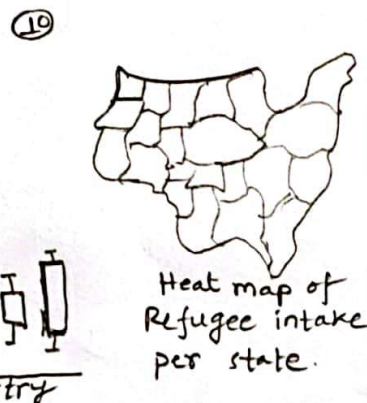 10
Heat map of
Refugee intake
per state.